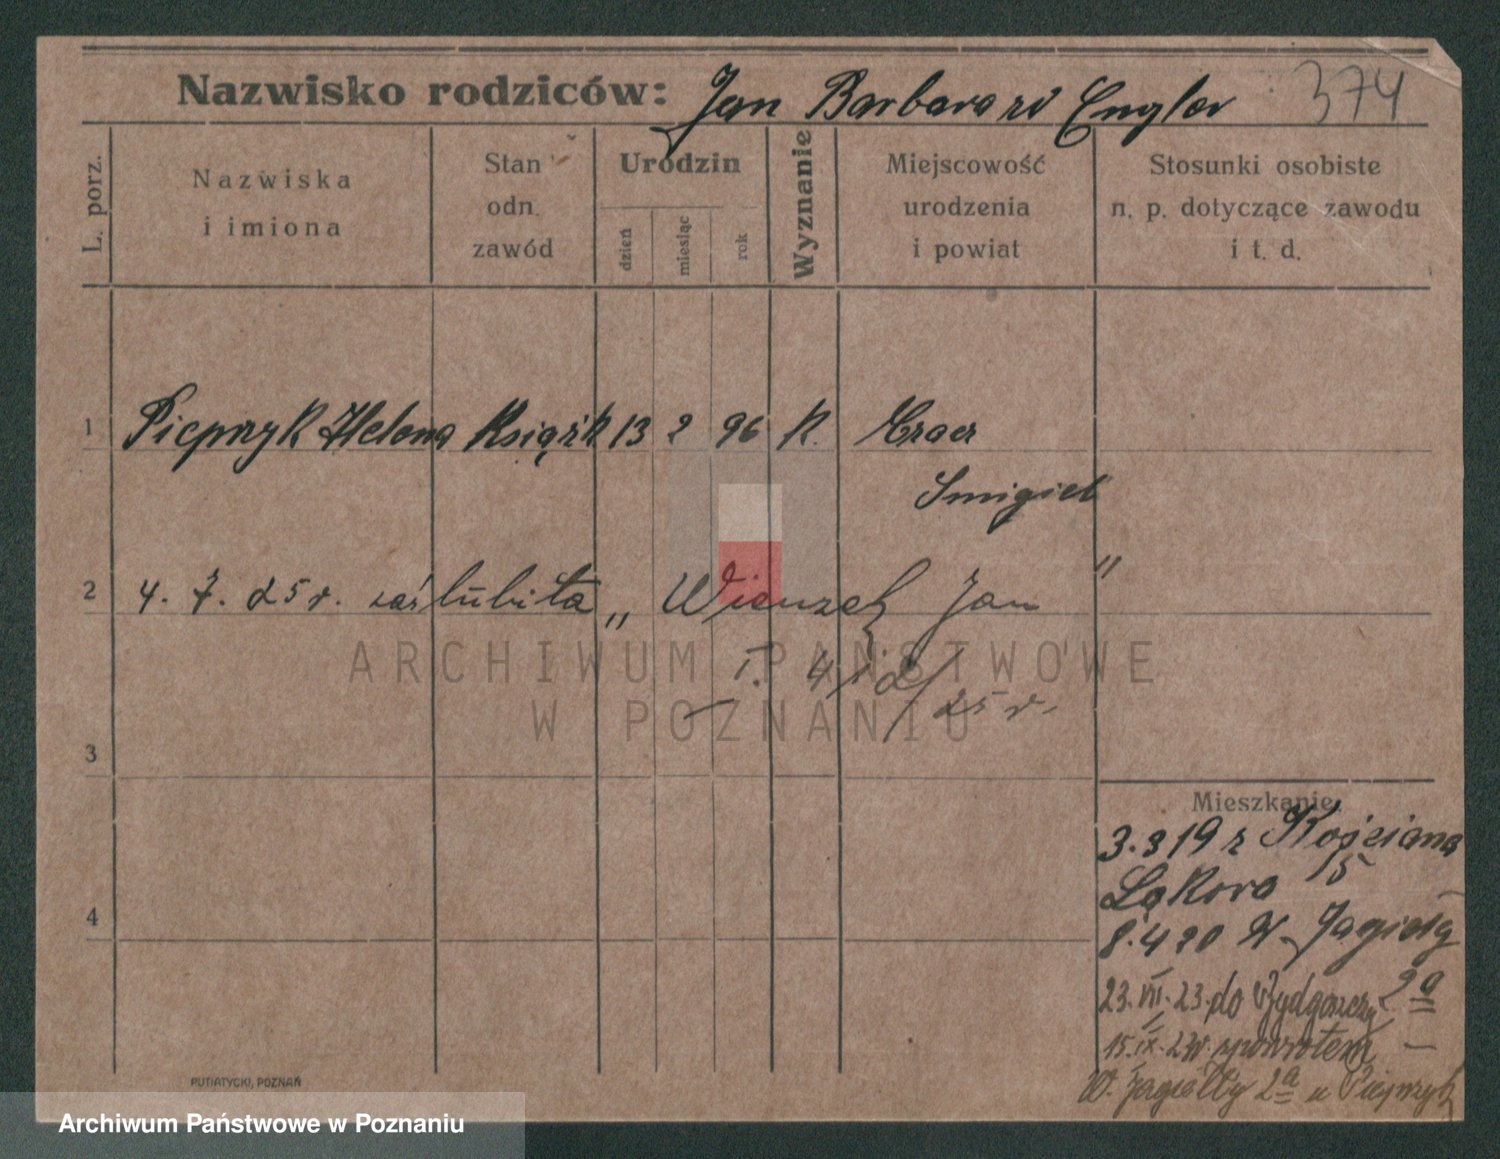 Nazwisko rodziców: Jan Barbara zd Engler 374
L. porz.
Nazwiska
i imiona
Stan
odn.
zawód
Urodzin
dzień
miesiąc
rok
Wyznanie
Miejscowość
urodzenia
i powiat
Stosunki osobiste
n. p. dotyczące zawodu
i t. d.
1 Pieprzyk Helena Książk 13 2 96 k.
Smigiel
2 4. 7. 25 r. zaślubiła „ Jan "
25 r.
3
Mieszkanie.
3.3 19 z Kościana
Łąkova 15
4
8.4 20 W. Jagieły
23. VII. 23. do Bydgoszczy 2a
15. IX. spowrotem —
W. Jagiełły 2a u Pieprzyk
PUTIATYCKI, POZNAŃ
ARCHIWUM PAŃSTWOWE
W POZNANIU
Archiwum Państwowe w Poznaniu